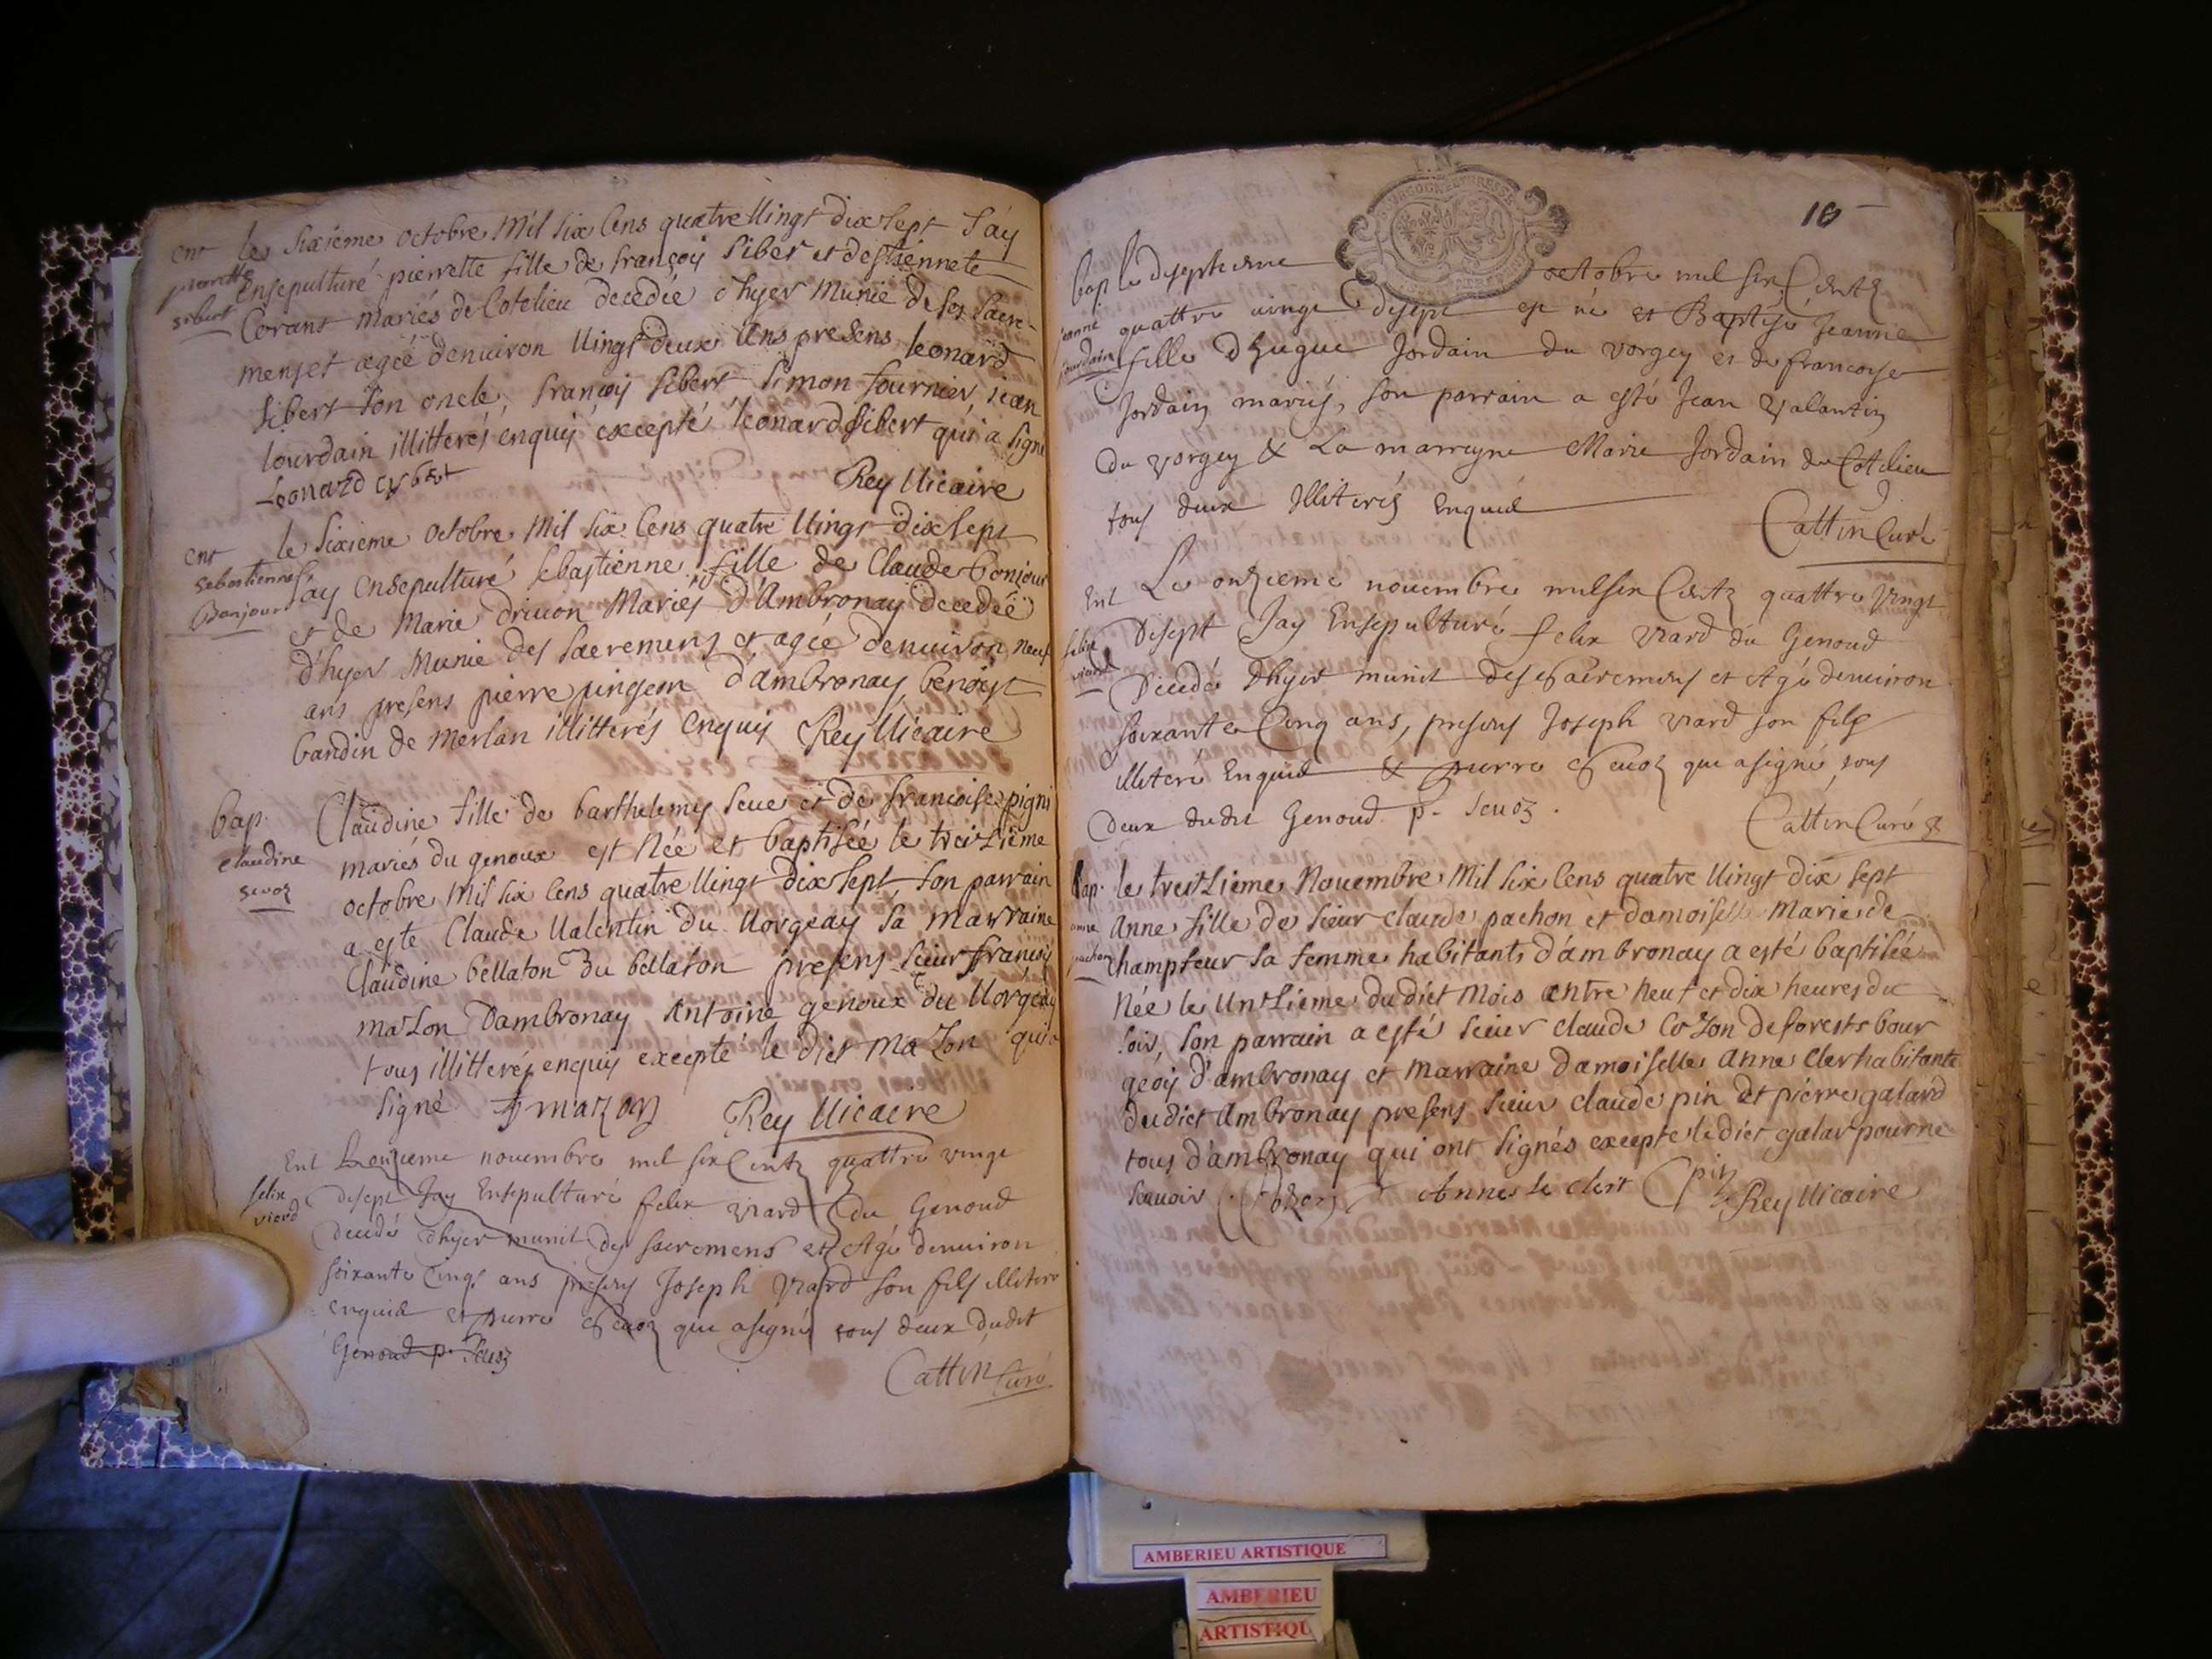 ent le sixieme octobre mil six cens quatre vingt dix sept j'ay
pierrette sibert
ensepulturé pierrette fille de françois siber et d'estiennete
Corant mariés de Cotelieu decedée d'hyer munie de ses sacre-
mens et agée denuiron vingt deux ans presens leonard
sibert son oncle, françois sibert simon fournier, jean
Jourdain illitterés enquis excepté leonard sibert qui a signé
Leonard cybert Rey Vicaire
ent le sixieme octobre mil six cens quatre vingt dix sept
sebastienne Bonjour
j'ay ensepulturé sebastienne fille de Claude bonjour
et de Marie driuon Mariés d'Ambronay decedée
d'hyer munie des sacremens et agée denuiron neuf
ans presens pierre pingeon d'ambronay, benoist
baudin de merlan illitterés enquis Rey Vicaire
bap.
claudine seuoz
Claudine fille de barthelemy seuet et de francoise pigni
mariés du genoux est née et baptisée le treizième
octobre mil six cens quatre vingt dix sept, son parrain
a este Claude Valentin du Vorgeay sa marraine
Claudine bellaton du bellaton presens sieur françois
mazon Dambronay Antoine genoux du Vorgeay
tous illitterés enquis excepté le dict mazon qui a
signé f mazon Rey Vicaire
Ent Le onzieme nouembre mil six Centz quattre vingt
felix viard
disept Jay Ensepulturé felix viard du Genoud
decedé dhyer munit des sacremens et Agé denuiron
soixante Cinq ans presens Joseph viard son fils illiteré
enquis et pierre Seuoz qui a signé tous deux dudit
Genoud p. Seuoz
Cattin Curé
10
bap le disseptiesme octobre mil six Centz
jeanne jourdain
quattre vingt disept est né et Baptisé Jeanne
fille dhugue Jordain du vorgey et de francoyse
Jordain mariés, son parrain a esté Jean Valantin
du vorgey & La marrayne Marie Jordain du Cotelieu
tous deux Illiterés Enquis
Cattin Curé
Ent Le onzieme nouembre mil six Centz quattre vingt
felix viard
disept Jay Ensepulturé felix viard du Genoud
Decedé dhyer munit des sacremens et Agé denuiron
soixante Cinq ans, presens Joseph viard son fils
illiteré Enquis & pierre Seuoz qui a signé tous
deux dudit Genoud p. Seuoz.
Cattin Curé
bap. le treizieme Nouembre mil six cens quatre vingt dix sept
anne pachon
Anne fille de sieur claude pachon et damoiselle Marie de
champteur sa femme habitants d'ambronay a esté baptisée
Née le Unzieme du dict mois entre neuf et dix heures du
soir, son parrain a esté sieur claude Cozon de forests bour
geois d'ambronay et marraine damoiselle anne Cler habitante
du dict Ambronay presens sieur claude pin et pierre galard
tous d'ambronay qui ont signés excepte le dict galar pour ne
scauoir. Cozon Anne le clert C pin Rey Vicaire
AMBERIEU ARTISTIQUE
AMBERIEU
ARTISTIQU